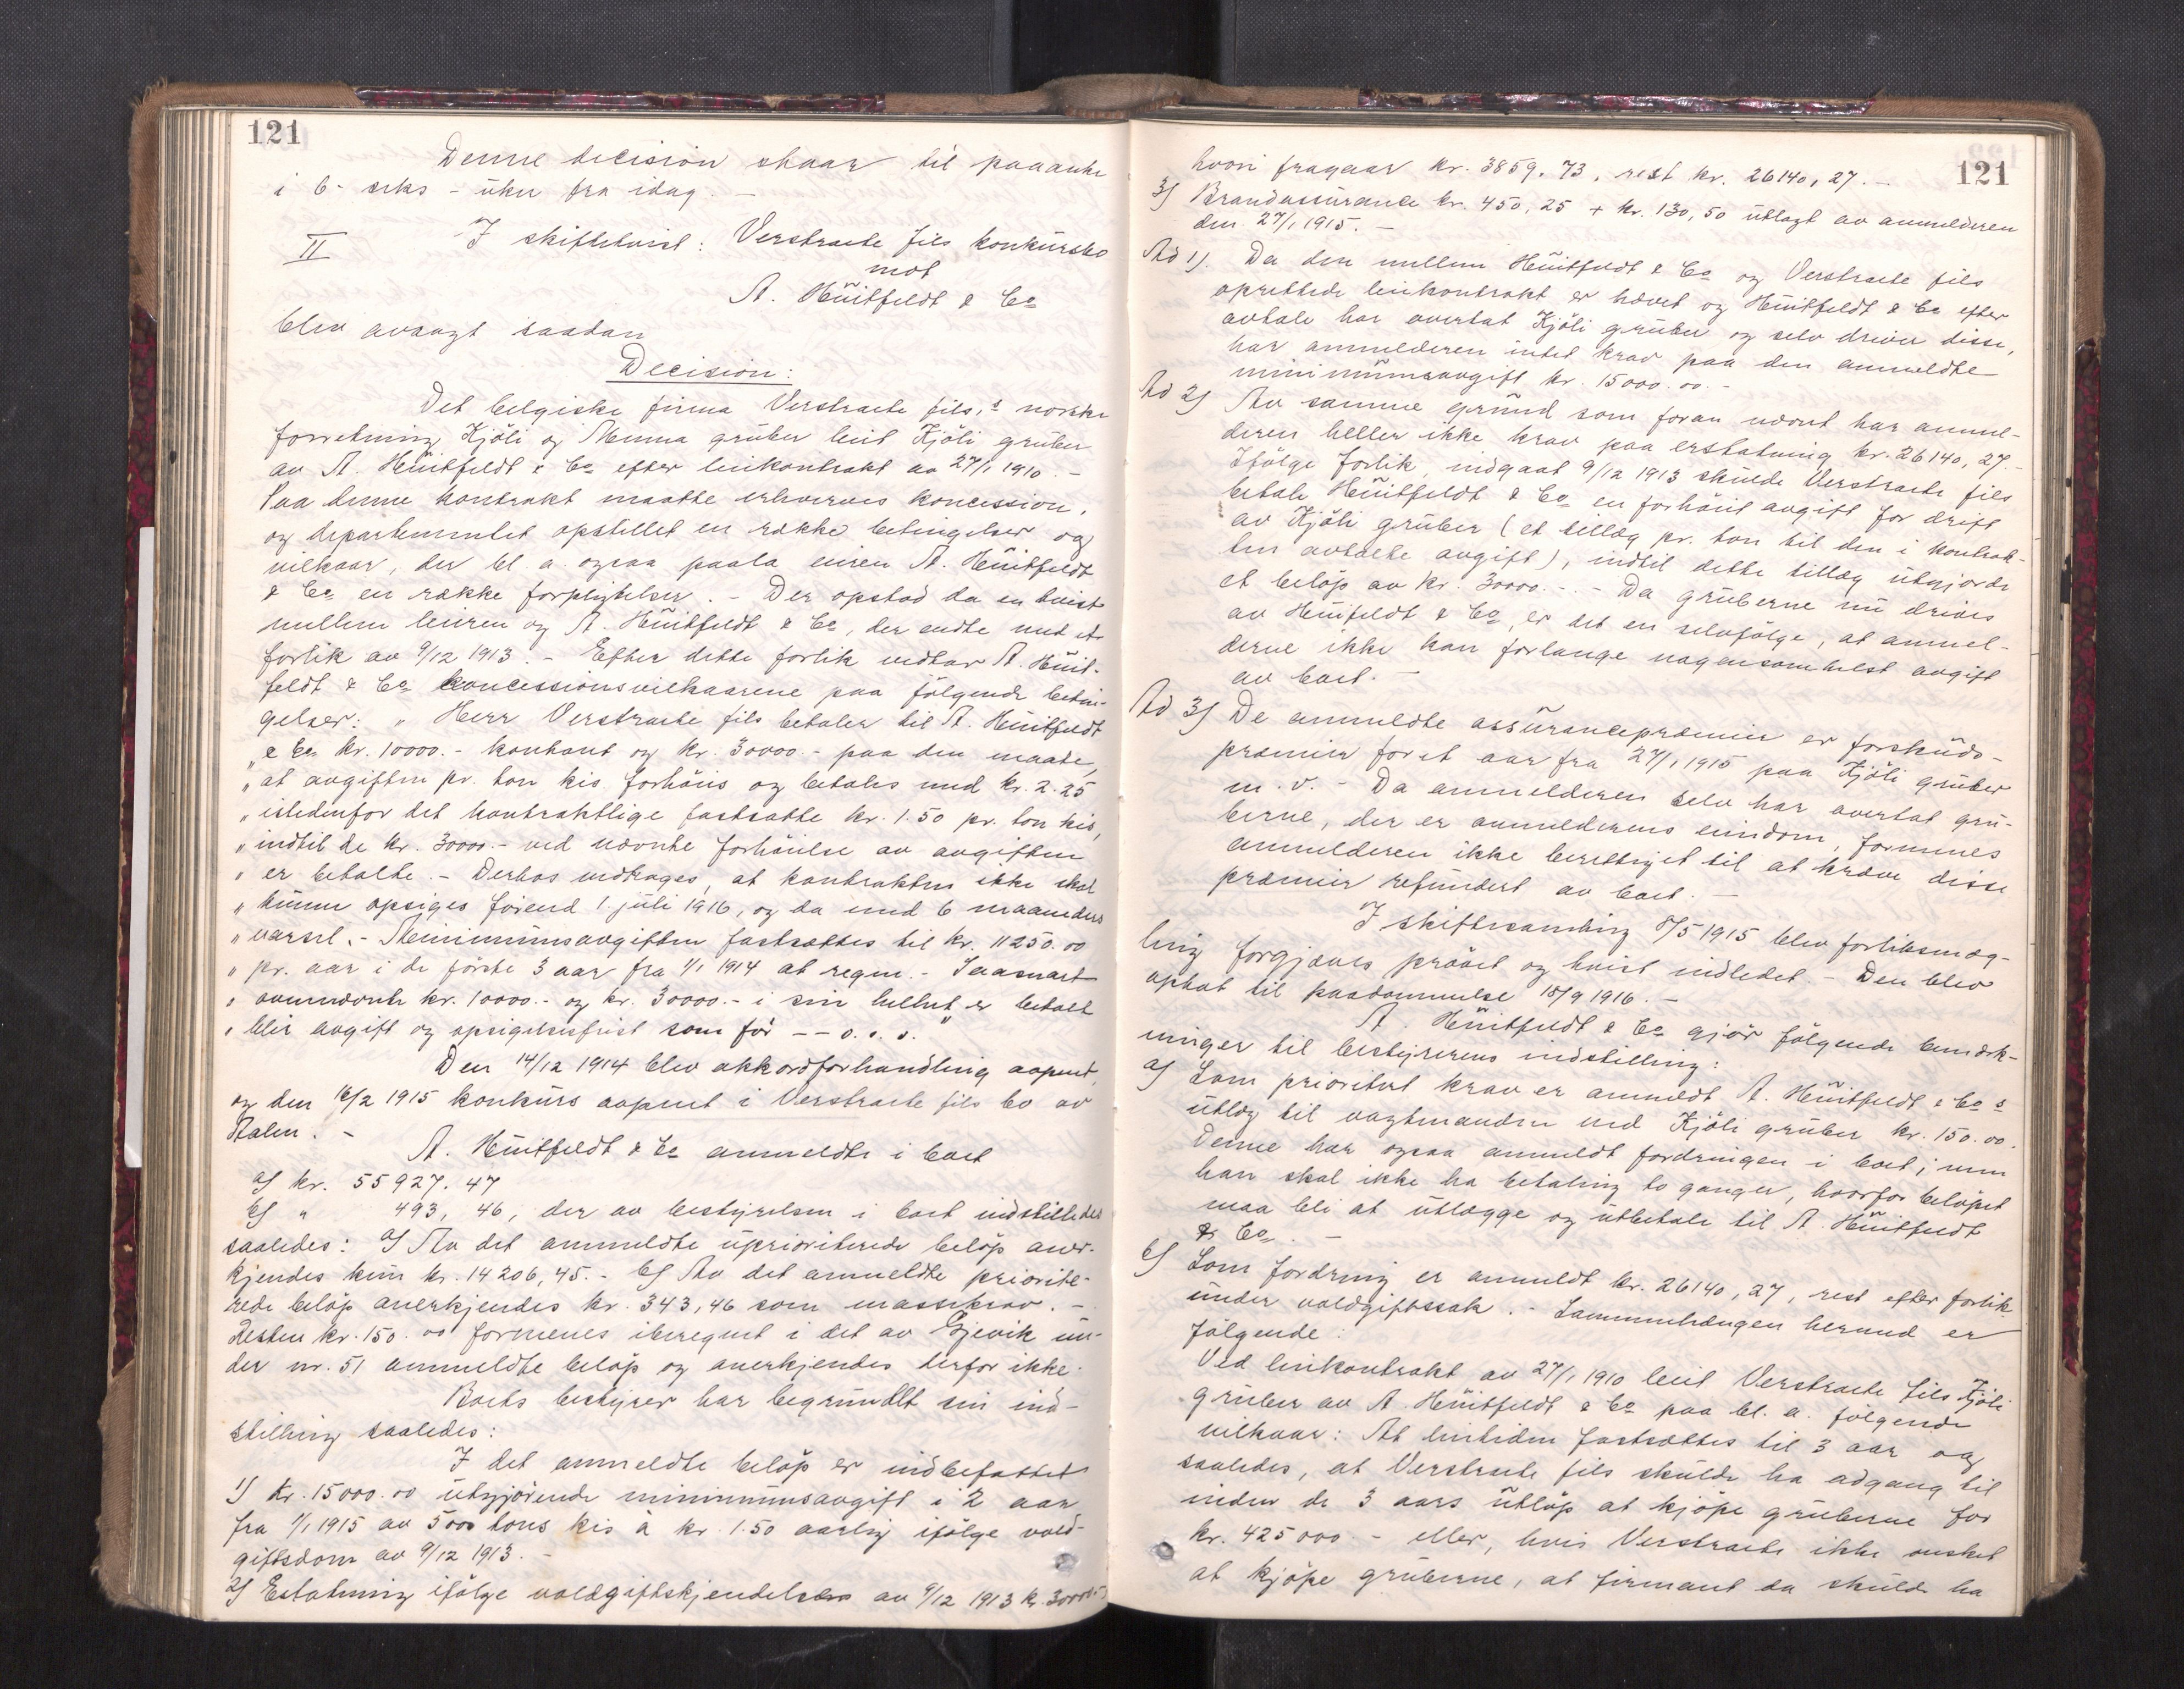 121
Denne decision staar til paaanke
i 6 - seks - uker fra idag. -
II I skiftetvist: Verstraete fils konkursbo
mot
A. Huitfeldt & Co
blev avsagt saadan
Decision:
Det belgiske firma Verstraete fils,s norske
forretning Kjöli og Menna gruber leiet Kjöli gruber
av A. Huitfeldt & Co efter leiekontrakt av 27/1 1910. -
Paa denne kontrakt maatte erhverves koncession,
og departementet opstillet en række betingelser og
vilkaar, der bl. a. ogsaa paala eieren A. Huitfeldt
& Co en række forpligtelser. - Der opstod da en tvist
mellem leieren og A. Huitfeldt & Co, der endte med et
forlik av 9/12 1913. - Efter dette forlik vedtar A. Huit-
feldt & Co koncessionsvilkaarene paa fölgende betin-
gelser: " Herr Verstraete fils betaler til A. Huitfeldt
" & Co kr. 10000.- kontant og kr. 30000.- paa den maate,
" at avgiften pr. ton kis forhöies og betales med kr. 2.25
" istedenfor det kontraktlige fastsatte kr. 1.50 pr. ton kis,
" indtil de kr. 30000.- ved nævnte forhöielse av avgiften
" er betalte. - Derhos vedtages, at kontrakten ikke skal
" kunne opsiges förend 1. juli 1916, og da med 6 maaneders
" varsel. - Minimumsavgiften fastsættes til kr. 11250.00
" pr. aar i de förste 3 aar fra 1/1 1914 at regne. - Saasnart
" ovennævnte kr. 10000.- og kr. 30000.- i sin helhet er betalt
" blir avgift og opsigelsesfrist som för -- o.s.v."
Den 14/12 1914 blev akkordforhandling aapnet,
og den 16/2 1915 konkurs aapnet i Verstraete fils bo av
Aalen. -
A. Huitfeldt & Co anmeldte i boet
a) kr. 55927.47
b) " 493,46, der av bestyrelsen i boet indstilledes
saaledes: a) Av det anmeldte uprioriterede belöp aner-
kjendes kun kr. 14206,45. - b) Av det anmeldte priorite-
rede belöp anerkjendes kr. 343,46 som massekrav. -
Resten kr. 150.00 formenes iberegnet i det av Gjevik un-
der nr. 51 anmeldte belöp og anerkjendes derfor ikke.
Boets bestyrer har begrundet sin ind-
stilling saaledes:
I det anmeldte belöp er indbefattet
1) Kr. 15000.00 utgjörende minimumsavgift i 2 aar
fra 1/1 1915 av 5000 tons kis à kr. 1.50 aarlig ifölge vold-
giftsdom av 9/12 1913. -
2) Erstatning ifölge voldgiftskjendelse av 9/12 1913 kr. 30000.-
121
hvori fragaar kr. 3859,73, rest kr. 26140,27. -
3) Brandassurance kr. 450,25 + kr. 130,50 utlagt av anmelderen
den 27/1 1915. -
Ad 1). Da den mellem Huitfeldt & Co og Verstraete fils
oprettede leiekontrakt er hævet og Huitfeldt & Co efter
avtale har overtat Kjöli gruber og selv driver disse,
har anmelderen intet krav paa den anmeldte
minimumsavgift kr. 15000.00. -
Ad 2) Av samme grund som foran nævnt har anmel-
deren heller ikke krav paa erstatning kr. 26140,27 -
Ifölge forlik, indgaat 9/12 1913 skulde Verstraete fils
betale Huitfeldt & Co en forhöiet avgift for drift
av Kjöli gruber (et tillæg pr. ton til den i kontrak-
ten avtalte avgift), indtil dette tillæg utgjorde
et belöp av kr. 30000. - - Da gruberne nu drives
av Huitfeldt & Co, er det en selvfölge, at anmel-
derne ikke kan forlange nogensomhelst avgift
av boet. -
Ad 3) De anmeldte assurancepræmier er forskuds-
præmier for et aar fra 27/1 1915 paa Kjöli gruber
m. v. - Da anmelderen selv har overtat gru-
berne, der er anmelderens eiendom, formenes
anmelderen ikke berettiget til at kræve disse
præmier refundert av boet. -
I skiftesamling 8/5 1915 blev forliksmæg-
ling forgjæves prövet og tvist indledet. - Den blev
optat til paadömmelse 15/9 1916. -
A. Huitfeldt & Co gjör fölgende bemærk-
ninger til bestyrerens indstilling:
a) Som prioritert krav er anmeldt A. Huitfeldt & Co s
utlæg til vagtmanden ved Kjöli gruber kr. 150.00.
Denne har ogsaa anmeldt fordringen i boet; men
han skal ikke ha betaling to ganger, hvorfor belöpet
maa bli at utlægge og utbetale til A. Huitfeldt
& Co. -
b) Som fordring er anmeldt kr. 26140,27, rest efter forlik
under voldgiftssak. - Sammenhængen hermed er
fölgende:
Ved leiekontrakt av 27/1 1910 leiet Verstraete fils Kjöli
gruber av A. Huitfeldt & Co paa bl. a. fölgende
vilkaar: At leietiden fastsættes til 3 aar og
saaledes, at Verstraete fils skulde ha adgang til
inden de 3 aars utlöp at kjöpe gruberne for
kr. 425000 - eller, hvis Verstraete ikke önsket
at kjöpe gruberne, at firmaet da skulde ha